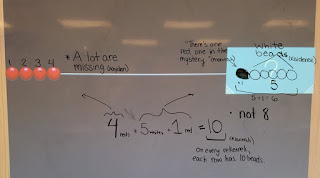 1 2 3 4
* A lot are
missing (Jayden)
"There's one
red, one in the
mystery"
white
beads (
5
5+1=6
4 reds + 5 whites + 1 red = 10
• not 8
on every rekenrek,
each row has 10 beads.